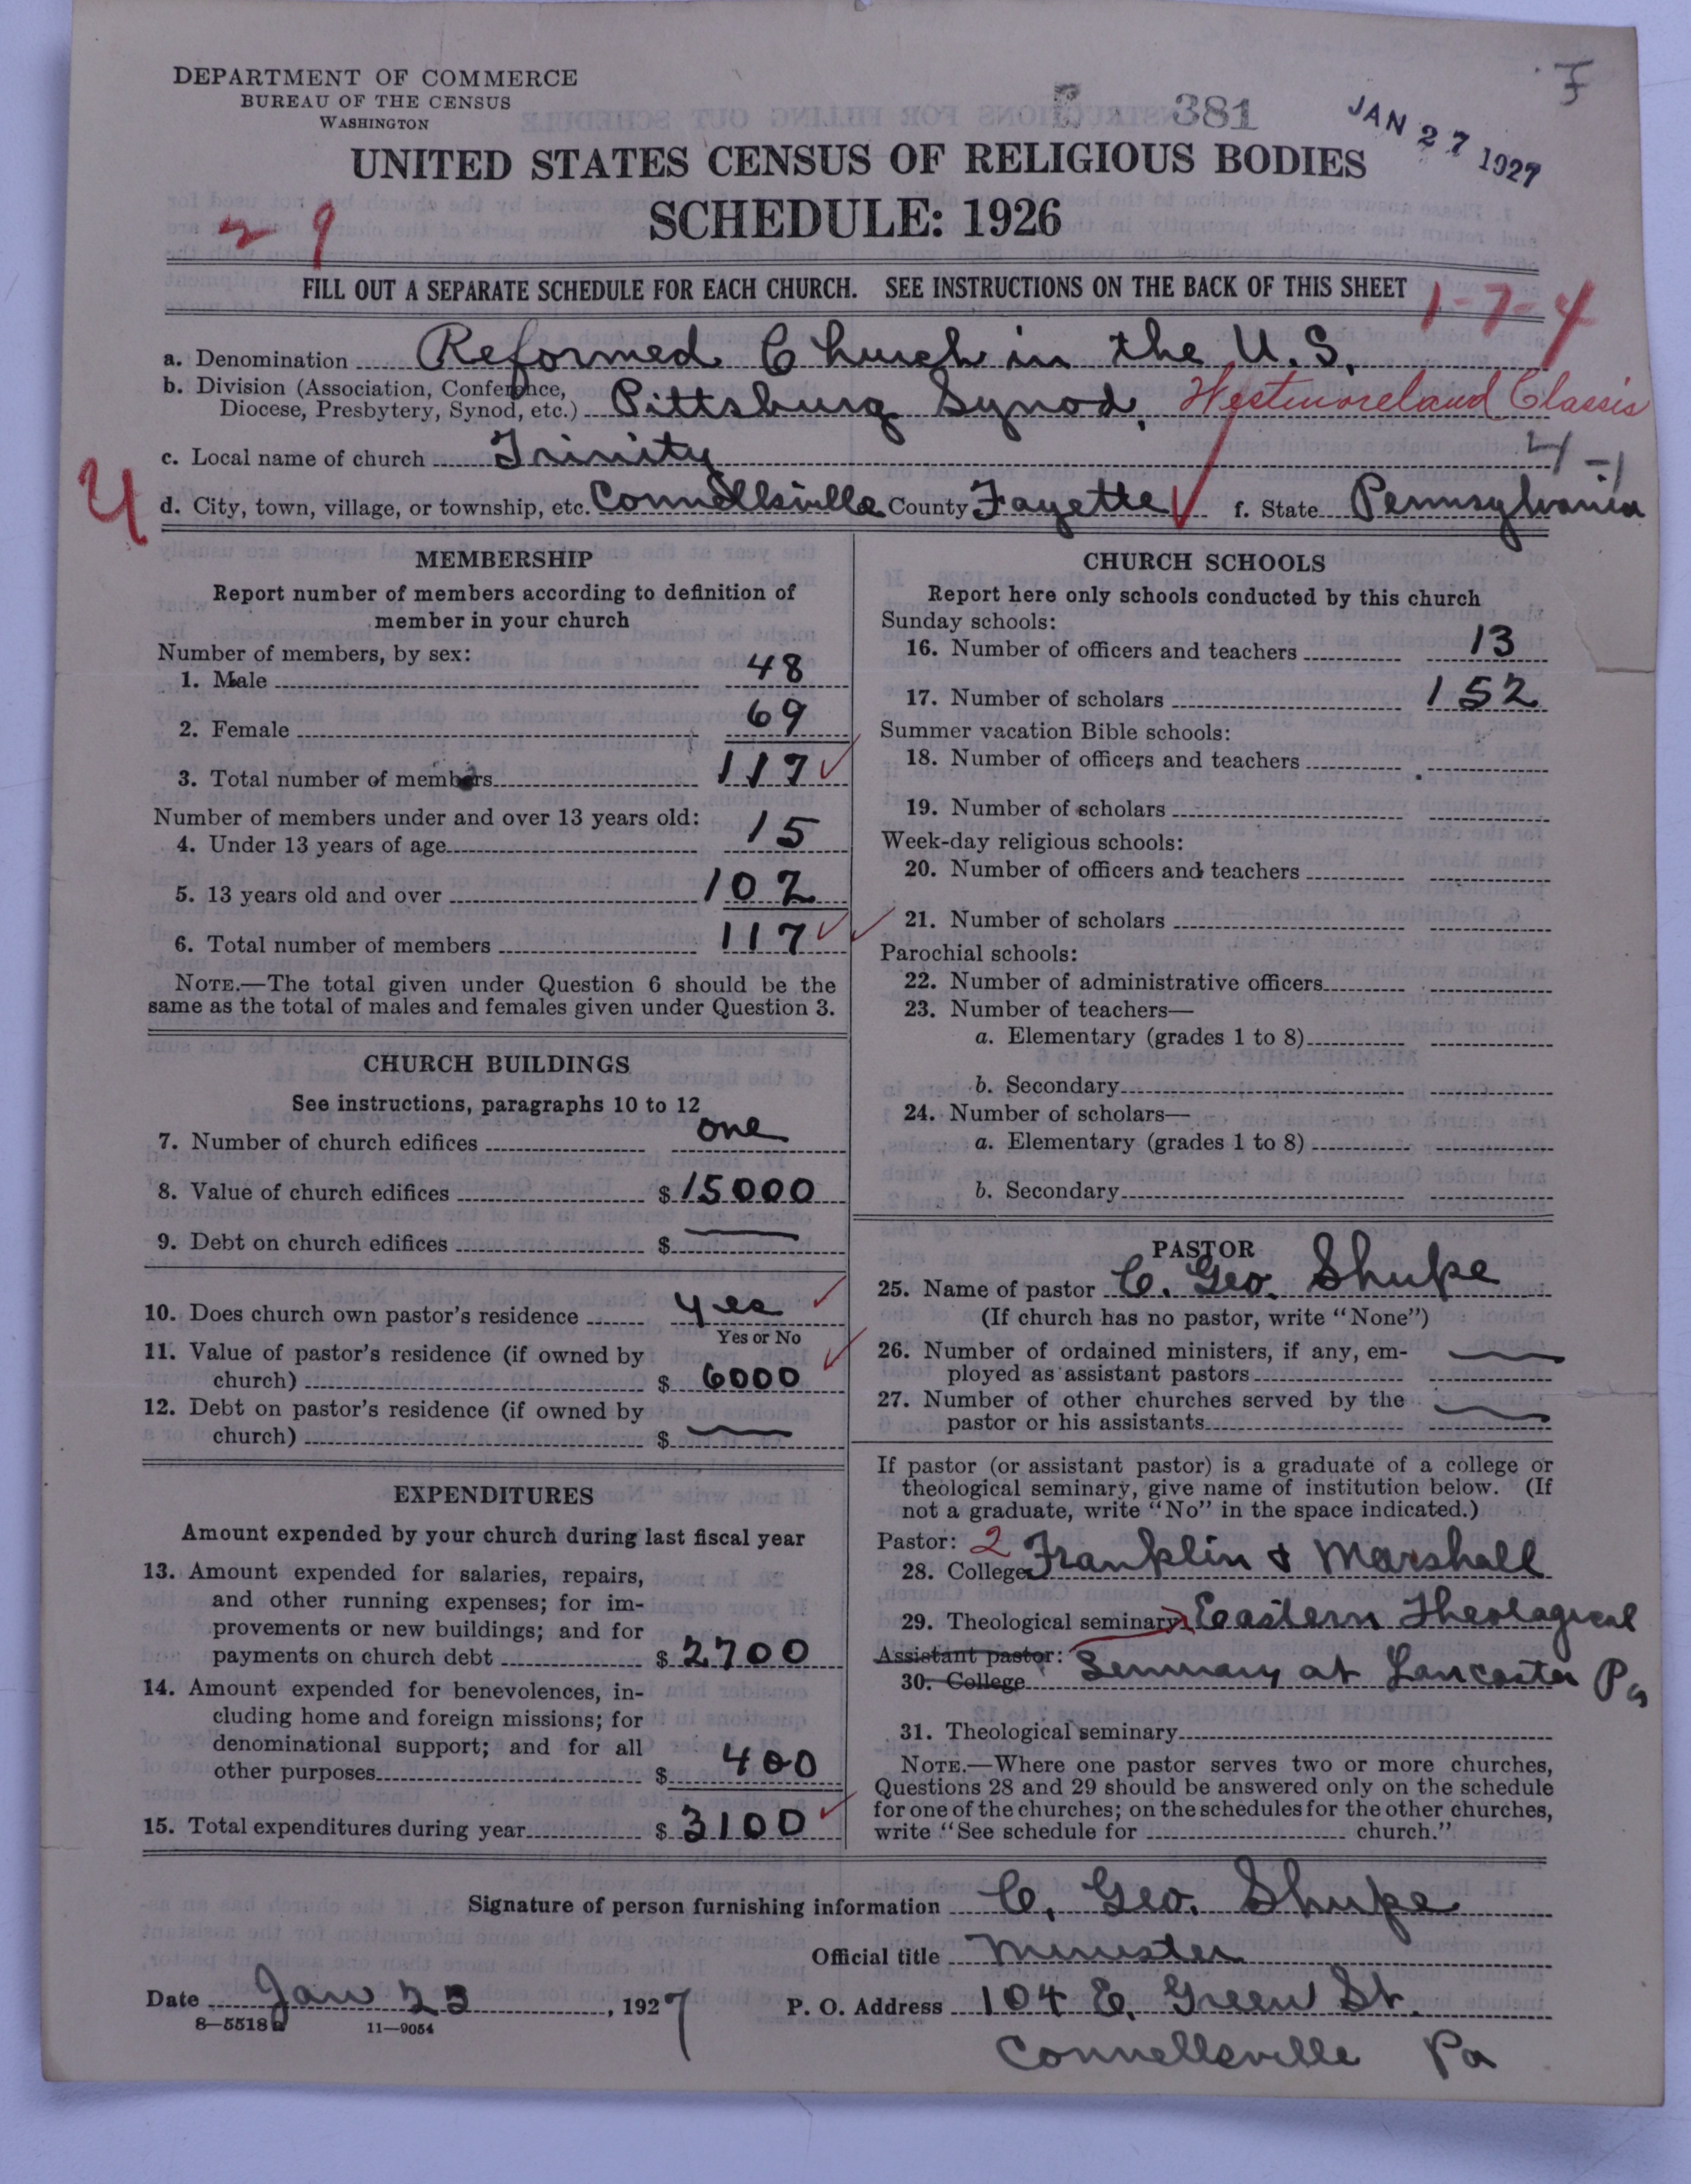 DEPARTMENT OF COMMERCE
BUREAU OF THE CENSUS
WASHINGTON
381
JAN 27 1927
UNITED STATES CENSUS OF RELIGIOUS BODIES
SCHEDULE: 1926
29
FILL OUT A SEPARATE SCHEDULE FOR EACH CHURCH. SEE INSTRUCTIONS ON THE BACK OF THIS SHEET
1-7-4
a. Denomination Reformed Church in the U.S.
b. Division (Association, Conference, Diocese, Presbytery, Synod, etc.) Pittsburg Synod, Westmoreland Classis
c. Local name of church Trinity
d. City, town, village, or township, etc. Connellsville County Fayette f. State Pennsylvania
MEMBERSHIP
Report number of members according to definition of
member in your church
Number of members, by sex:
1. Male 48
2. Female 69
3. Total number of members 117
Number of members under and over 13 years old:
4. Under 13 years of age 15
5. 13 years old and over 102
6. Total number of members 117
NOTE.—The total given under Question 6 should be the
same as the total of males and females given under Question 3.
CHURCH BUILDINGS
See instructions, paragraphs 10 to 12
7. Number of church edifices one
8. Value of church edifices $ 15000
9. Debt on church edifices $ —
10. Does church own pastor's residence yes
Yes or No
11. Value of pastor's residence (if owned by
church) $ 6000
12. Debt on pastor's residence (if owned by
church) $ —
EXPENDITURES
Amount expended by your church during last fiscal year
13. Amount expended for salaries, repairs,
and other running expenses; for im-
provements or new buildings; and for
payments on church debt $ 2700
14. Amount expended for benevolences, in-
cluding home and foreign missions; for
denominational support; and for all
other purposes $ 400
15. Total expenditures during year $ 3100
CHURCH SCHOOLS
Report here only schools conducted by this church
Sunday schools:
16. Number of officers and teachers 13
17. Number of scholars 152
Summer vacation Bible schools:
18. Number of officers and teachers
19. Number of scholars
Week-day religious schools:
20. Number of officers and teachers
21. Number of scholars
Parochial schools:
22. Number of administrative officers
23. Number of teachers—
a. Elementary (grades 1 to 8)
b. Secondary
24. Number of scholars—
a. Elementary (grades 1 to 8)
b. Secondary
PASTOR
25. Name of pastor C. Geo. Shupe
(If church has no pastor, write "None")
26. Number of ordained ministers, if any, em-
ployed as assistant pastors —
27. Number of other churches served by the
pastor or his assistants —
If pastor (or assistant pastor) is a graduate of a college or
theological seminary, give name of institution below. (If
not a graduate, write "No" in the space indicated.)
Pastor: 2
28. College Franklin & Marshall
29. Theological seminary Eastern Theological
Assistant pastor: Seminary at Lancaster Pa
30. College
31. Theological seminary
NOTE.—Where one pastor serves two or more churches,
Questions 28 and 29 should be answered only on the schedule
for one of the churches; on the schedules for the other churches,
write "See schedule for church."
Signature of person furnishing information C. Geo. Shupe
Official title Minister
Date Jan 23, 1927 P. O. Address 104 E. Green St.
8—5518 a 11—9054
Connellsville Pa